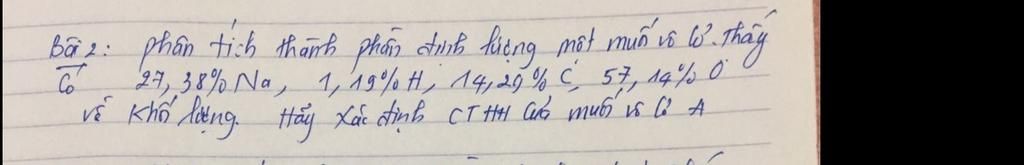 Bài 2: phân tích thành phần định lượng một muối vô cơ. Thấy
Có 27,38% Na, 1,19% H, 14,29% C, 57,14% O
về khối lượng. Hãy xác định CTHH của muối vô cơ A